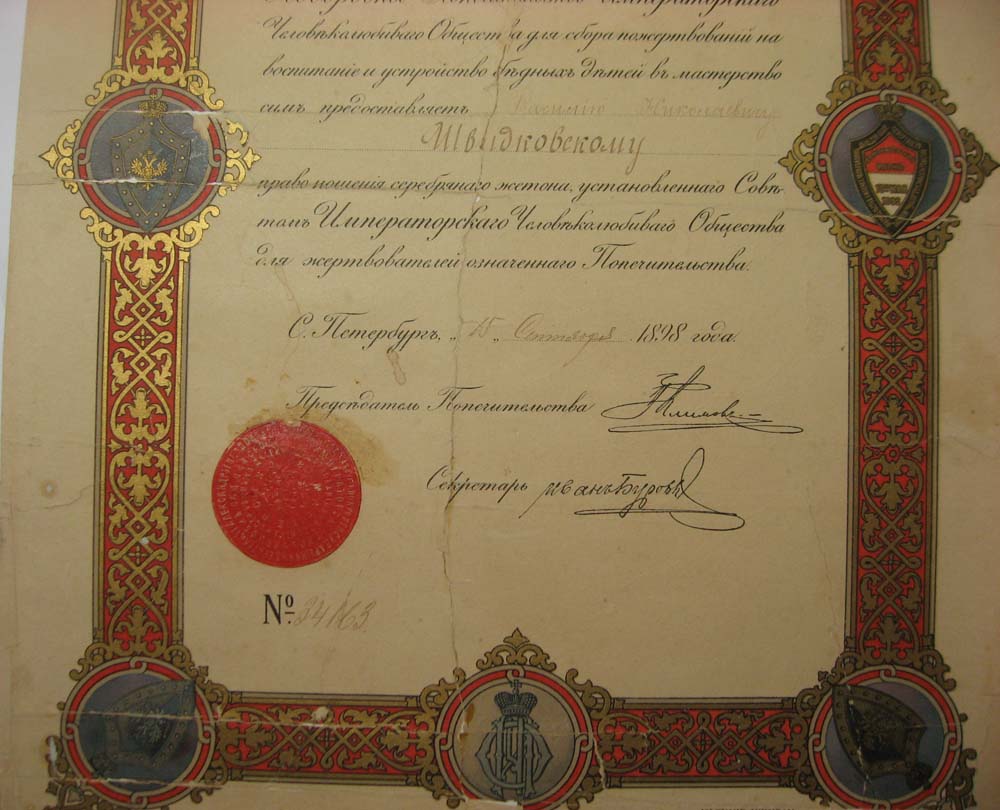 Императорскаго
Человѣколюбиваго Общества для сбора пожертвованій на
воспитаніе и устройство бѣдныхъ дѣтей въ мастерство
симъ предоставляетъ Василію Николаевичу
Швидковскому
право ношенія серебрянаго жетона, установленнаго Совѣ-
томъ Императорскаго Человѣколюбиваго Общества
для жертвователей означеннаго Попечительства.
С. Петербургъ, „15„ Сентября 1898 года.
Предсѣдатель Попечительства
Секретарь Иванъ Буровъ
№ 34163